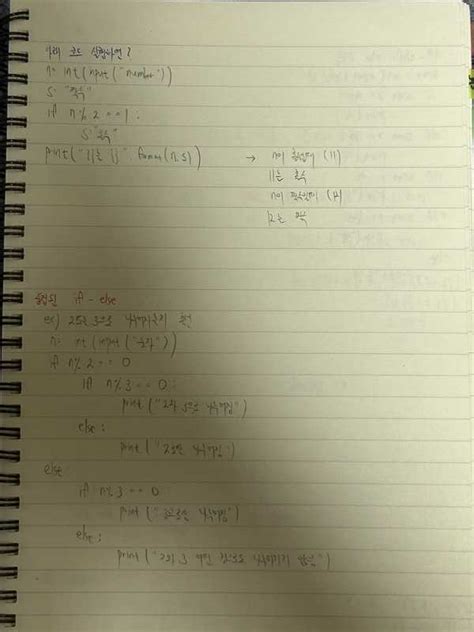 아래 코드 실행하면?
n = int(input("number"))
s = "짝수"
if n % 2 == 1 :
s = "홀수"
print("{}는 {}".format(n, s)) → n이 홀수일때 (11)
11는 홀수
n이 짝수일때 (12)
12는 짝수
중첩된 if - else
ex) 2와 3으로 나누어지는지 판단
n = int(input("숫자"))
if n % 2 == 0
if n % 3 == 0 :
print("2와 3으로 나누어짐")
else :
print("2로만 나누어짐")
else
if n % 3 == 0
print("3으로만 나누어짐")
else :
print("2와 3 어떤 것으로도 나누어지지 않음")